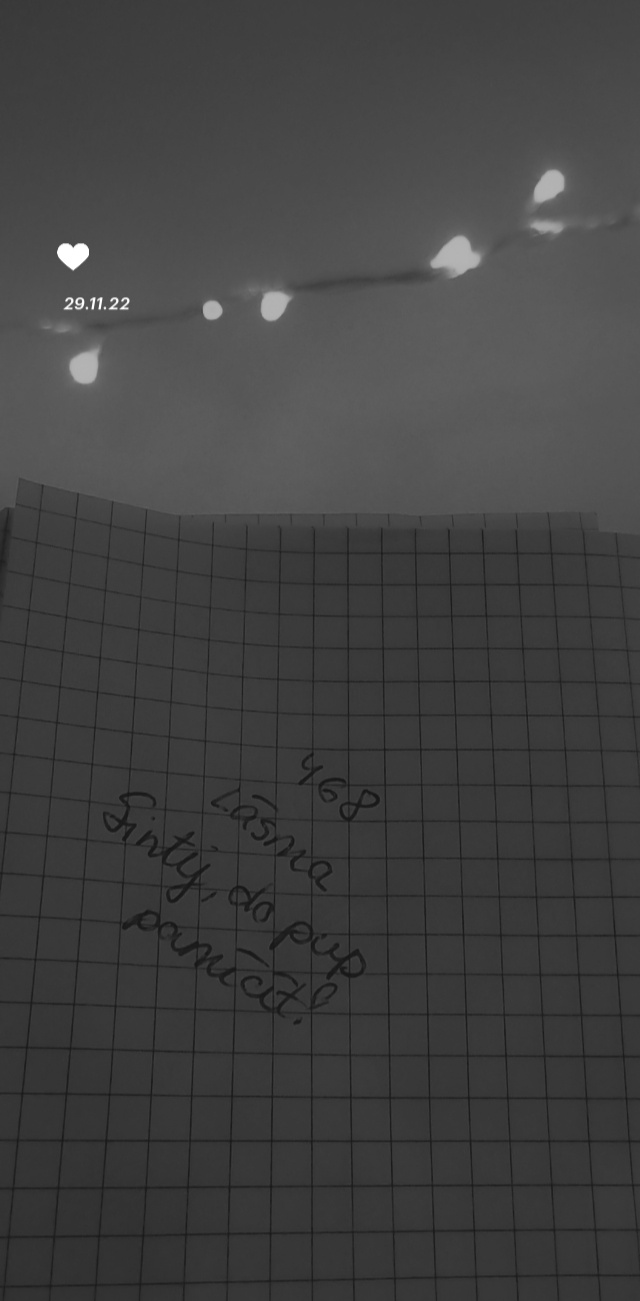 29.11.22
468
Lāsma
Gintij, do pup
pamācīt!